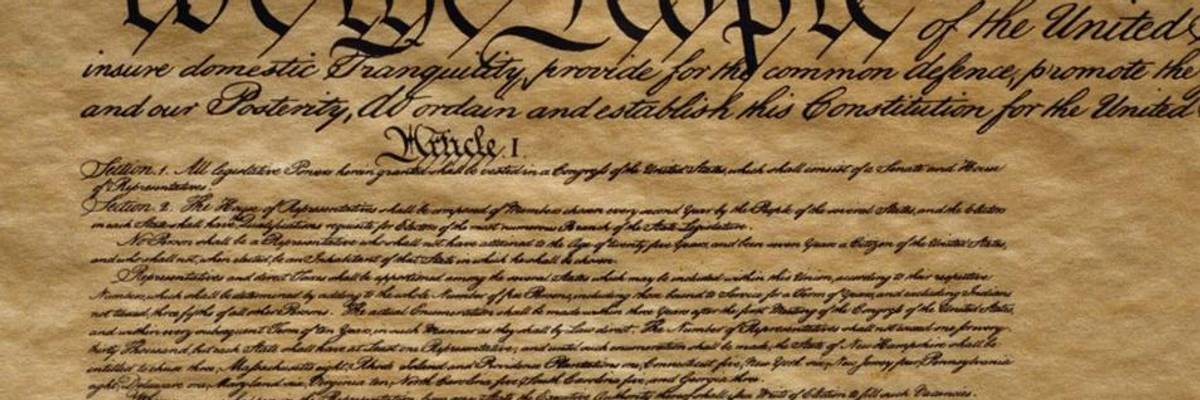 We the People of the United
insure domestic Tranquility, provide for the common defence, promote the
and our Posterity, do ordain and establish this Constitution for the United
Article. I
Section. 1. All legislative Powers herein granted shall be vested in a Congress of the United States, which shall consist of a Senate and House
of Representatives.
Section. 2. The House of Representatives shall be composed of Members chosen every second Year by the People of the several States, and the Electors
in each State shall have the Qualifications requisite for Electors of the most numerous Branch of the State Legislature.
No Person shall be a Representative who shall not have attained to the Age of twenty five Years, and been seven Years a Citizen of the United States,
and who shall not, when elected, be an Inhabitant of that State in which he shall be chosen.
Representatives and direct Taxes shall be apportioned among the several States which may be included within this Union, according to their respective
Numbers, which shall be determined by adding to the whole Number of free Persons, including those bound to Service for a Term of Years, and excluding Indians
not taxed, three fifths of all other Persons. The actual Enumeration shall be made within three Years after the first Meeting of the Congress of the United States,
and within every subsequent Term of ten Years, in such Manner as they shall by Law direct. The Number of Representatives shall not exceed one for every
thirty Thousand, but each State shall have at Least one Representative; and until such enumeration shall be made, the State of New Hampshire shall be
entitled to chuse three, Massachusetts eight, Rhode Island and Providence Plantations one, Connecticut five, New York six, New Jersey four, Pennsylvania
eight, Delaware one, Maryland six, Virginia ten, North Carolina five, South Carolina five, and Georgia three.
Representation from any State, the Executive Authority thereof shall issue Writs of Election to fill such Vacancies.